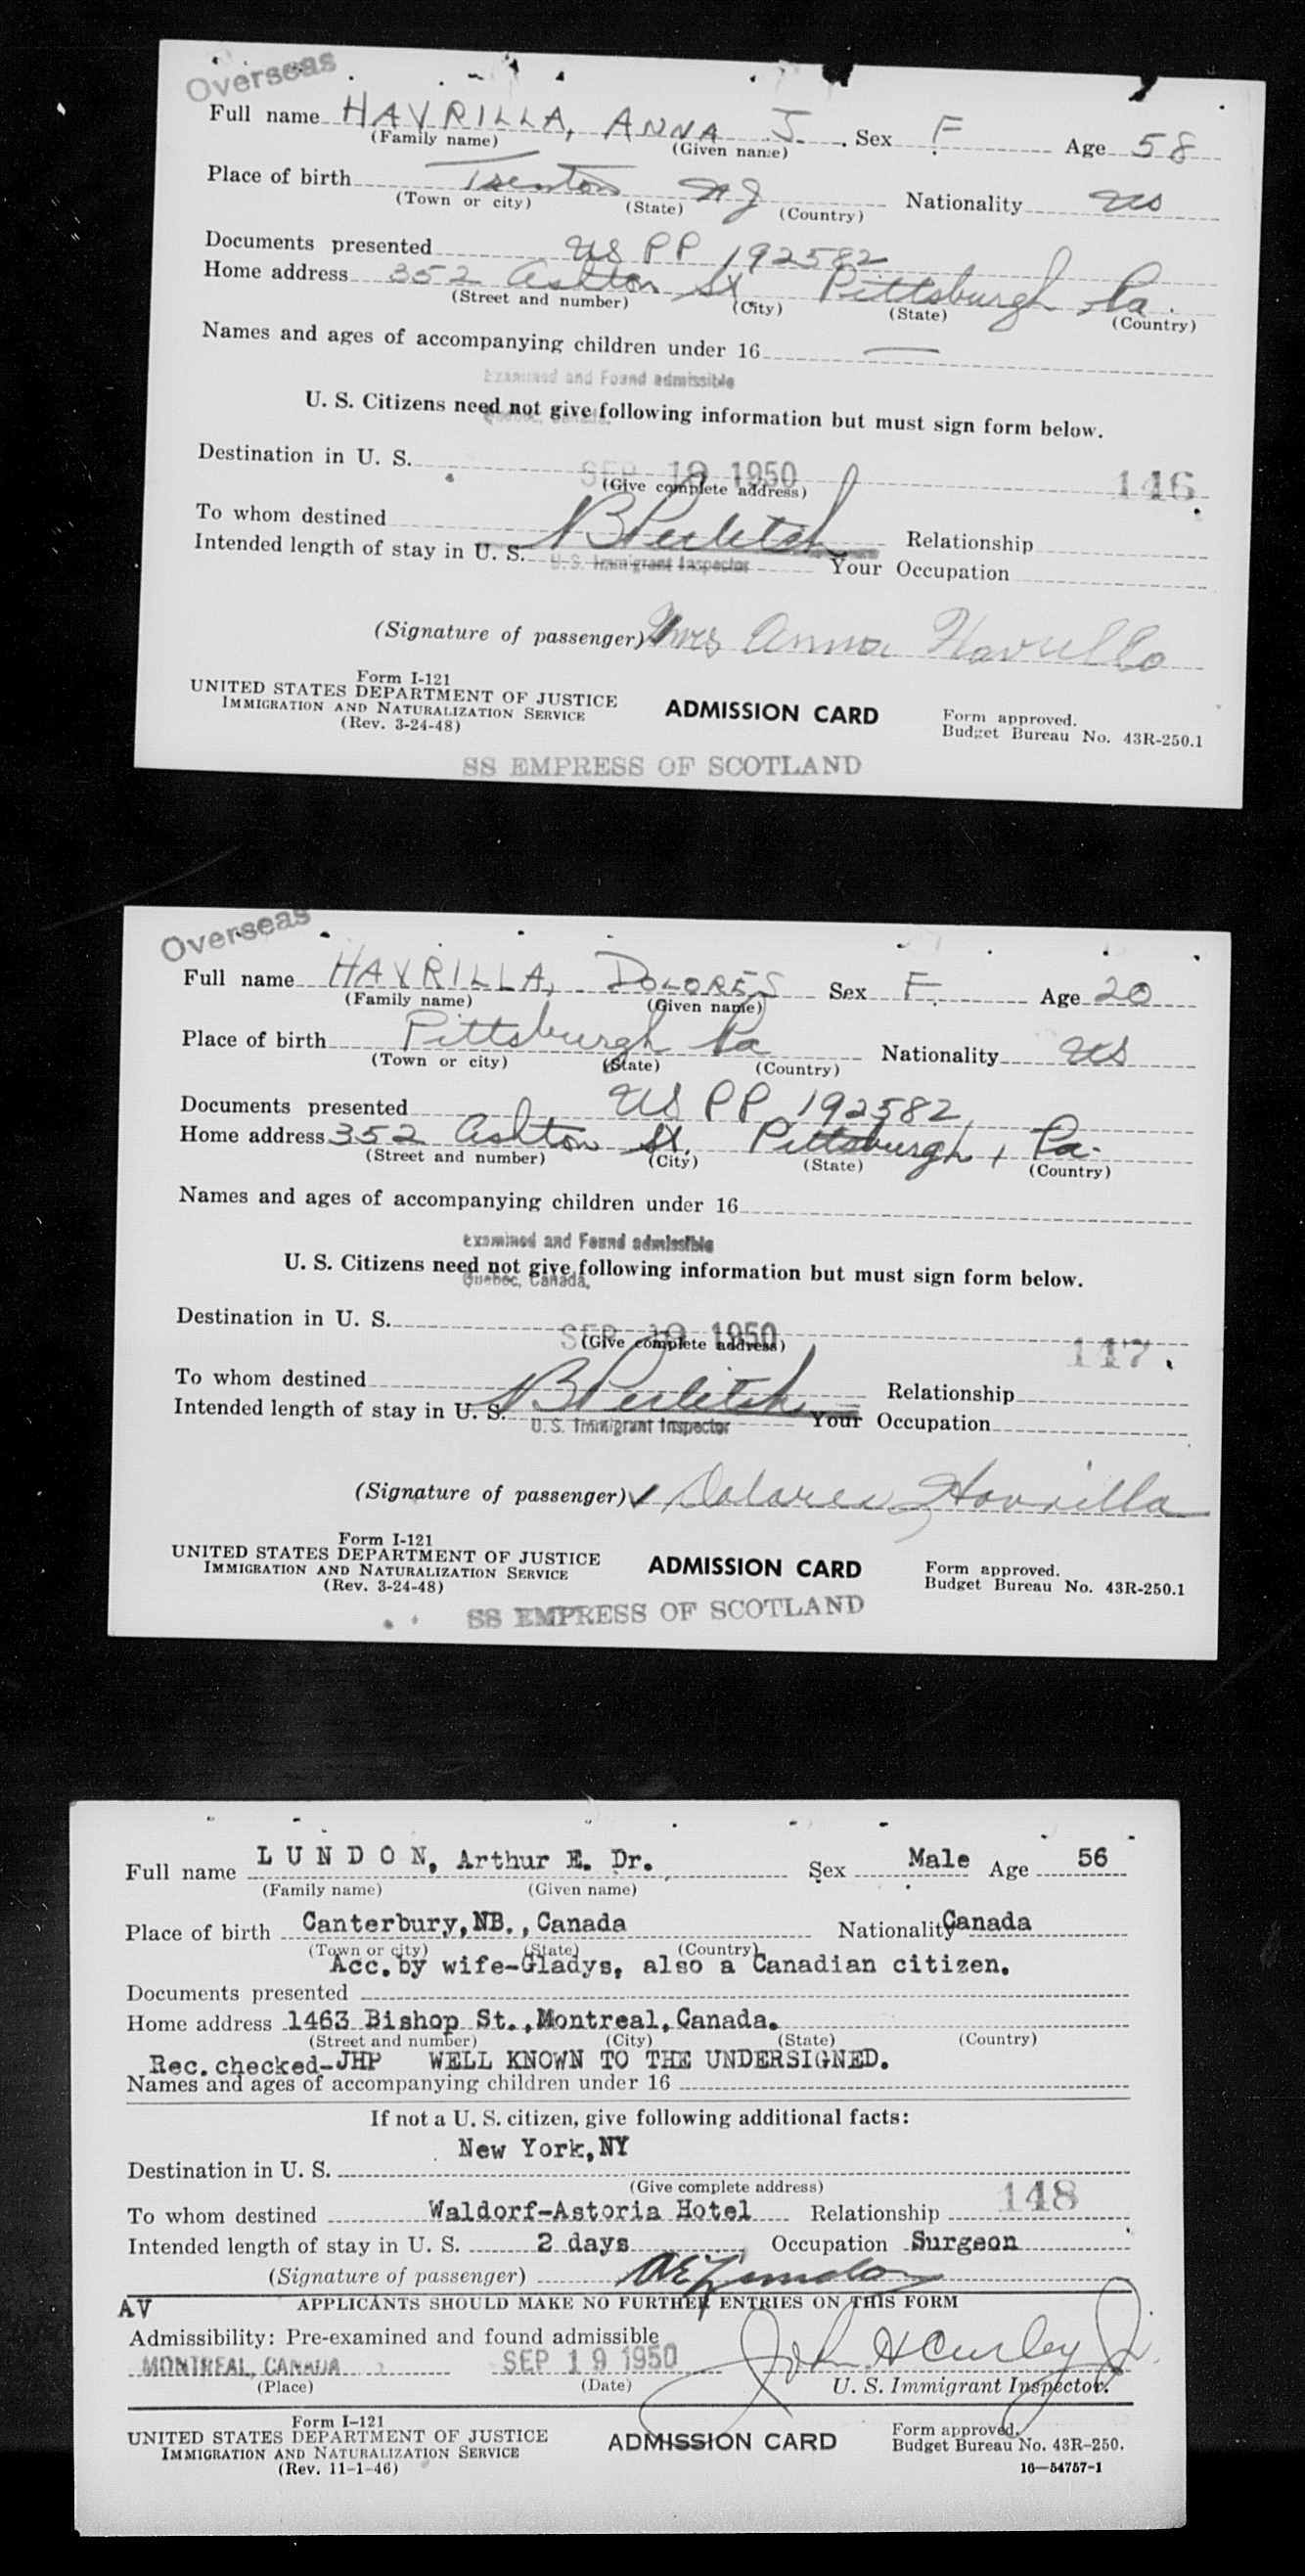 Overseas
Full name HAVRILLA, ANNA J. Sex F Age 58
(Family name) (Given name)
Place of birth Trenton NJ Nationality US
(Town or city) (State) (Country)
Documents presented US PP 192582
Home address 352 Ashton St. Pittsburgh, Pa.
(Street and number) (City) (State) (Country)
Names and ages of accompanying children under 16 —
Examined and Found admissible
U. S. Citizens need not give following information but must sign form below.
Quebec, Canada.
Destination in U. S.
SEP 19 1950 146
(Give complete address)
To whom destined Relationship
Intended length of stay in U. S. Your Occupation
U. S. Immigrant Inspector
(Signature of passenger) Mrs Anna Havrilla
Form I-121
UNITED STATES DEPARTMENT OF JUSTICE
IMMIGRATION AND NATURALIZATION SERVICE
(Rev. 3-24-48)
ADMISSION CARD
Form approved.
Budget Bureau No. 43R-250.1
SS EMPRESS OF SCOTLAND
Overseas
Full name HAVRILLA, DOLORES Sex F Age 20
(Family name) (Given name)
Place of birth Pittsburgh Pa Nationality US
(Town or city) (State) (Country)
Documents presented US PP 192582
Home address 352 Ashton St. Pittsburgh, Pa.
(Street and number) (City) (State) (Country)
Names and ages of accompanying children under 16
Examined and Found admissible
U. S. Citizens need not give following information but must sign form below.
Quebec, Canada,
Destination in U. S.
SEP 19 1950 147
(Give complete address)
To whom destined Relationship
Intended length of stay in U. S. Your Occupation
U. S. Immigrant Inspector
(Signature of passenger) Dolores Havrilla
Form I-121
UNITED STATES DEPARTMENT OF JUSTICE
IMMIGRATION AND NATURALIZATION SERVICE
(Rev. 3-24-48)
ADMISSION CARD
Form approved.
Budget Bureau No. 43R-250.1
SS EMPRESS OF SCOTLAND
Full name L U N D O N, Arthur E. Dr. Sex Male Age 56
(Family name) (Given name)
Place of birth Canterbury,NB., Canada Nationality Canada
(Town or city) (State) (Country)
Acc. by wife-Gladys, also a Canadian citizen.
Documents presented
Home address 1463 Bishop St.,Montreal,Canada.
(Street and number) (City) (State) (Country)
Rec. checked-JHP WELL KNOWN TO THE UNDERSIGNED.
Names and ages of accompanying children under 16
If not a U. S. citizen, give following additional facts:
New York,NY
Destination in U. S.
(Give complete address)
148
To whom destined Waldorf-Astoria Hotel Relationship
Intended length of stay in U. S. 2 days Occupation Surgeon
(Signature of passenger) AE Lundon
AV APPLICANTS SHOULD MAKE NO FURTHER ENTRIES ON THIS FORM
Admissibility: Pre-examined and found admissible
MONTREAL, CANADA SEP 19 1950 John H Curley Jr.
(Place) (Date) U. S. Immigrant Inspector.
Form I-121
UNITED STATES DEPARTMENT OF JUSTICE
IMMIGRATION AND NATURALIZATION SERVICE
(Rev. 11-1-46)
ADMISSION CARD
Form approved.
Budget Bureau No. 43R-250.
16—54757-1